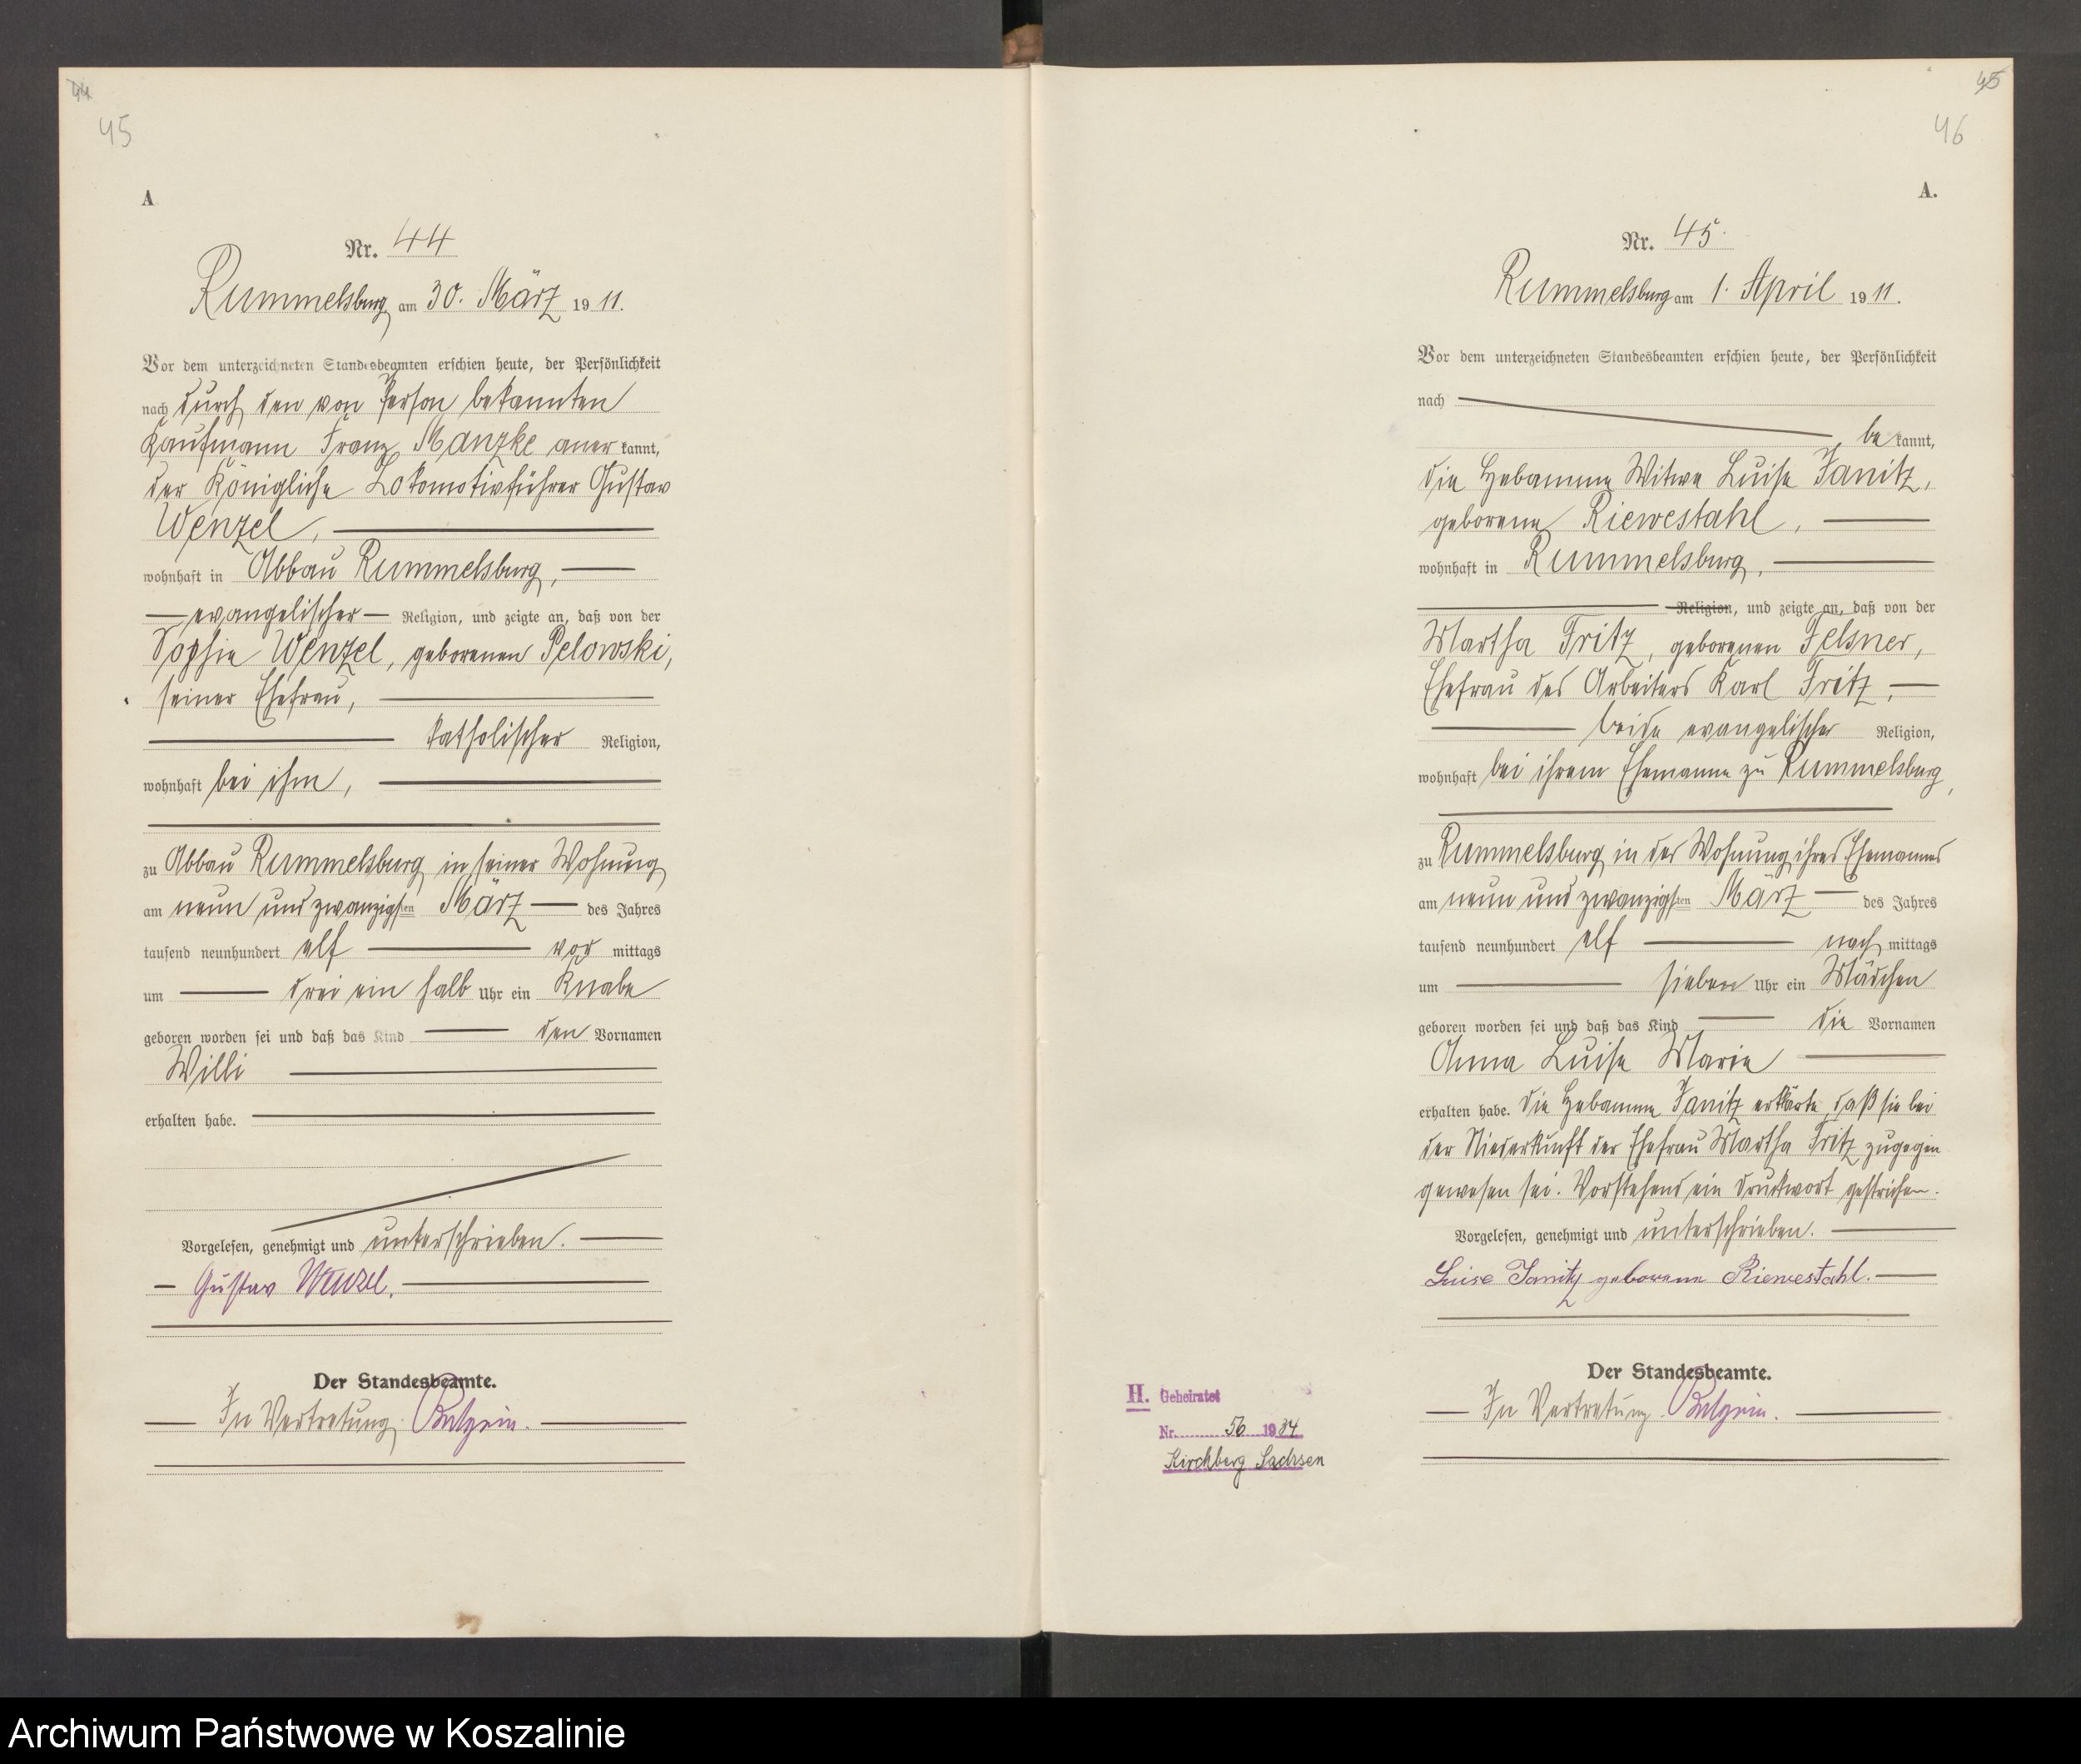 44
45
A
Nr. 44
Rummelsburg am 30. März 1911.
Vor dem unterzeichneten Standesbeamten erschien heute, der Persönlichkeit
nach durch den von Person bekannten
Kaufmann Franz Manzke aner kannt,
der Königliche Lokomotivführer Gustav
Wenzel,
wohnhaft in Abbau Rummelsburg,
evangelischer Religion, und zeigte an, daß von der
Sophie Wenzel, geborenen Pelowski,
seiner Ehefrau,
katholischer Religion,
wohnhaft bei ihm,
zu Abbau Rummelsburg in seiner Wohnung
am neun und zwanzigsten März des Jahres
tausend neunhundert elf vor mittags
um drei ein halb Uhr ein Knabe
geboren worden sei und daß das Kind den Vornamen
Willi
erhalten habe.
Vorgelesen, genehmigt und unterschrieben.
Gustav Wenzel.
Der Standesbeamte.
In Vertretung.
45
46
A.
Nr. 45.
Rummelsburg am 1. April 1911.
Vor dem unterzeichneten Standesbeamten erschien heute, der Persönlichkeit
nach
be kannt,
die Hebamme Witwe Luise Janitz,
geborene Riewestahl,
wohnhaft in Rummelsburg,
Religion, und zeigte an, daß von der
Martha Fritz, geborenen Felsner,
Ehefrau des Arbeiters Karl Fritz,
beide evangelischer Religion,
wohnhaft bei ihrem Ehemanne zu Rummelsburg,
zu Rummelsburg in der Wohnung ihres Ehemannes
am neun und zwanzigsten März des Jahres
tausend neunhundert elf nach mittags
um sieben Uhr ein Mädchen
geboren worden sei und daß das Kind die Vornamen
Anna Luise Marie
erhalten habe. Die Hebamme Janitz erklärte, daß sie bei
der Niederkunft der Ehefrau Martha Fritz zugegen
gewesen sei. Vorstehend ein Druckwort gestrichen.
Vorgelesen, genehmigt und unterschrieben.
Luise Janitz geborene Riewestahl.
Der Standesbeamte.
In Vertretung.
H. Geheiratet
Nr. 56 1934
Kirchberg Sachsen
Archiwum Państwowe w Koszalinie